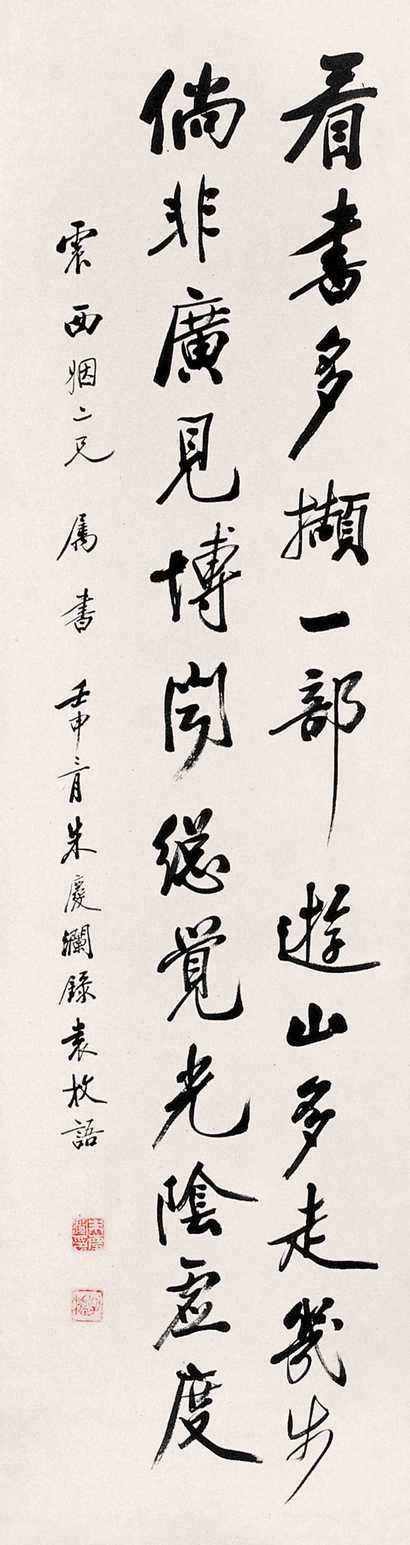 看書多擷一部遊山多走幾步
倘非廣見博聞總覺光陰虛度
震西姻二兄屬書壬申二月朱慶瀾錄袁枚語